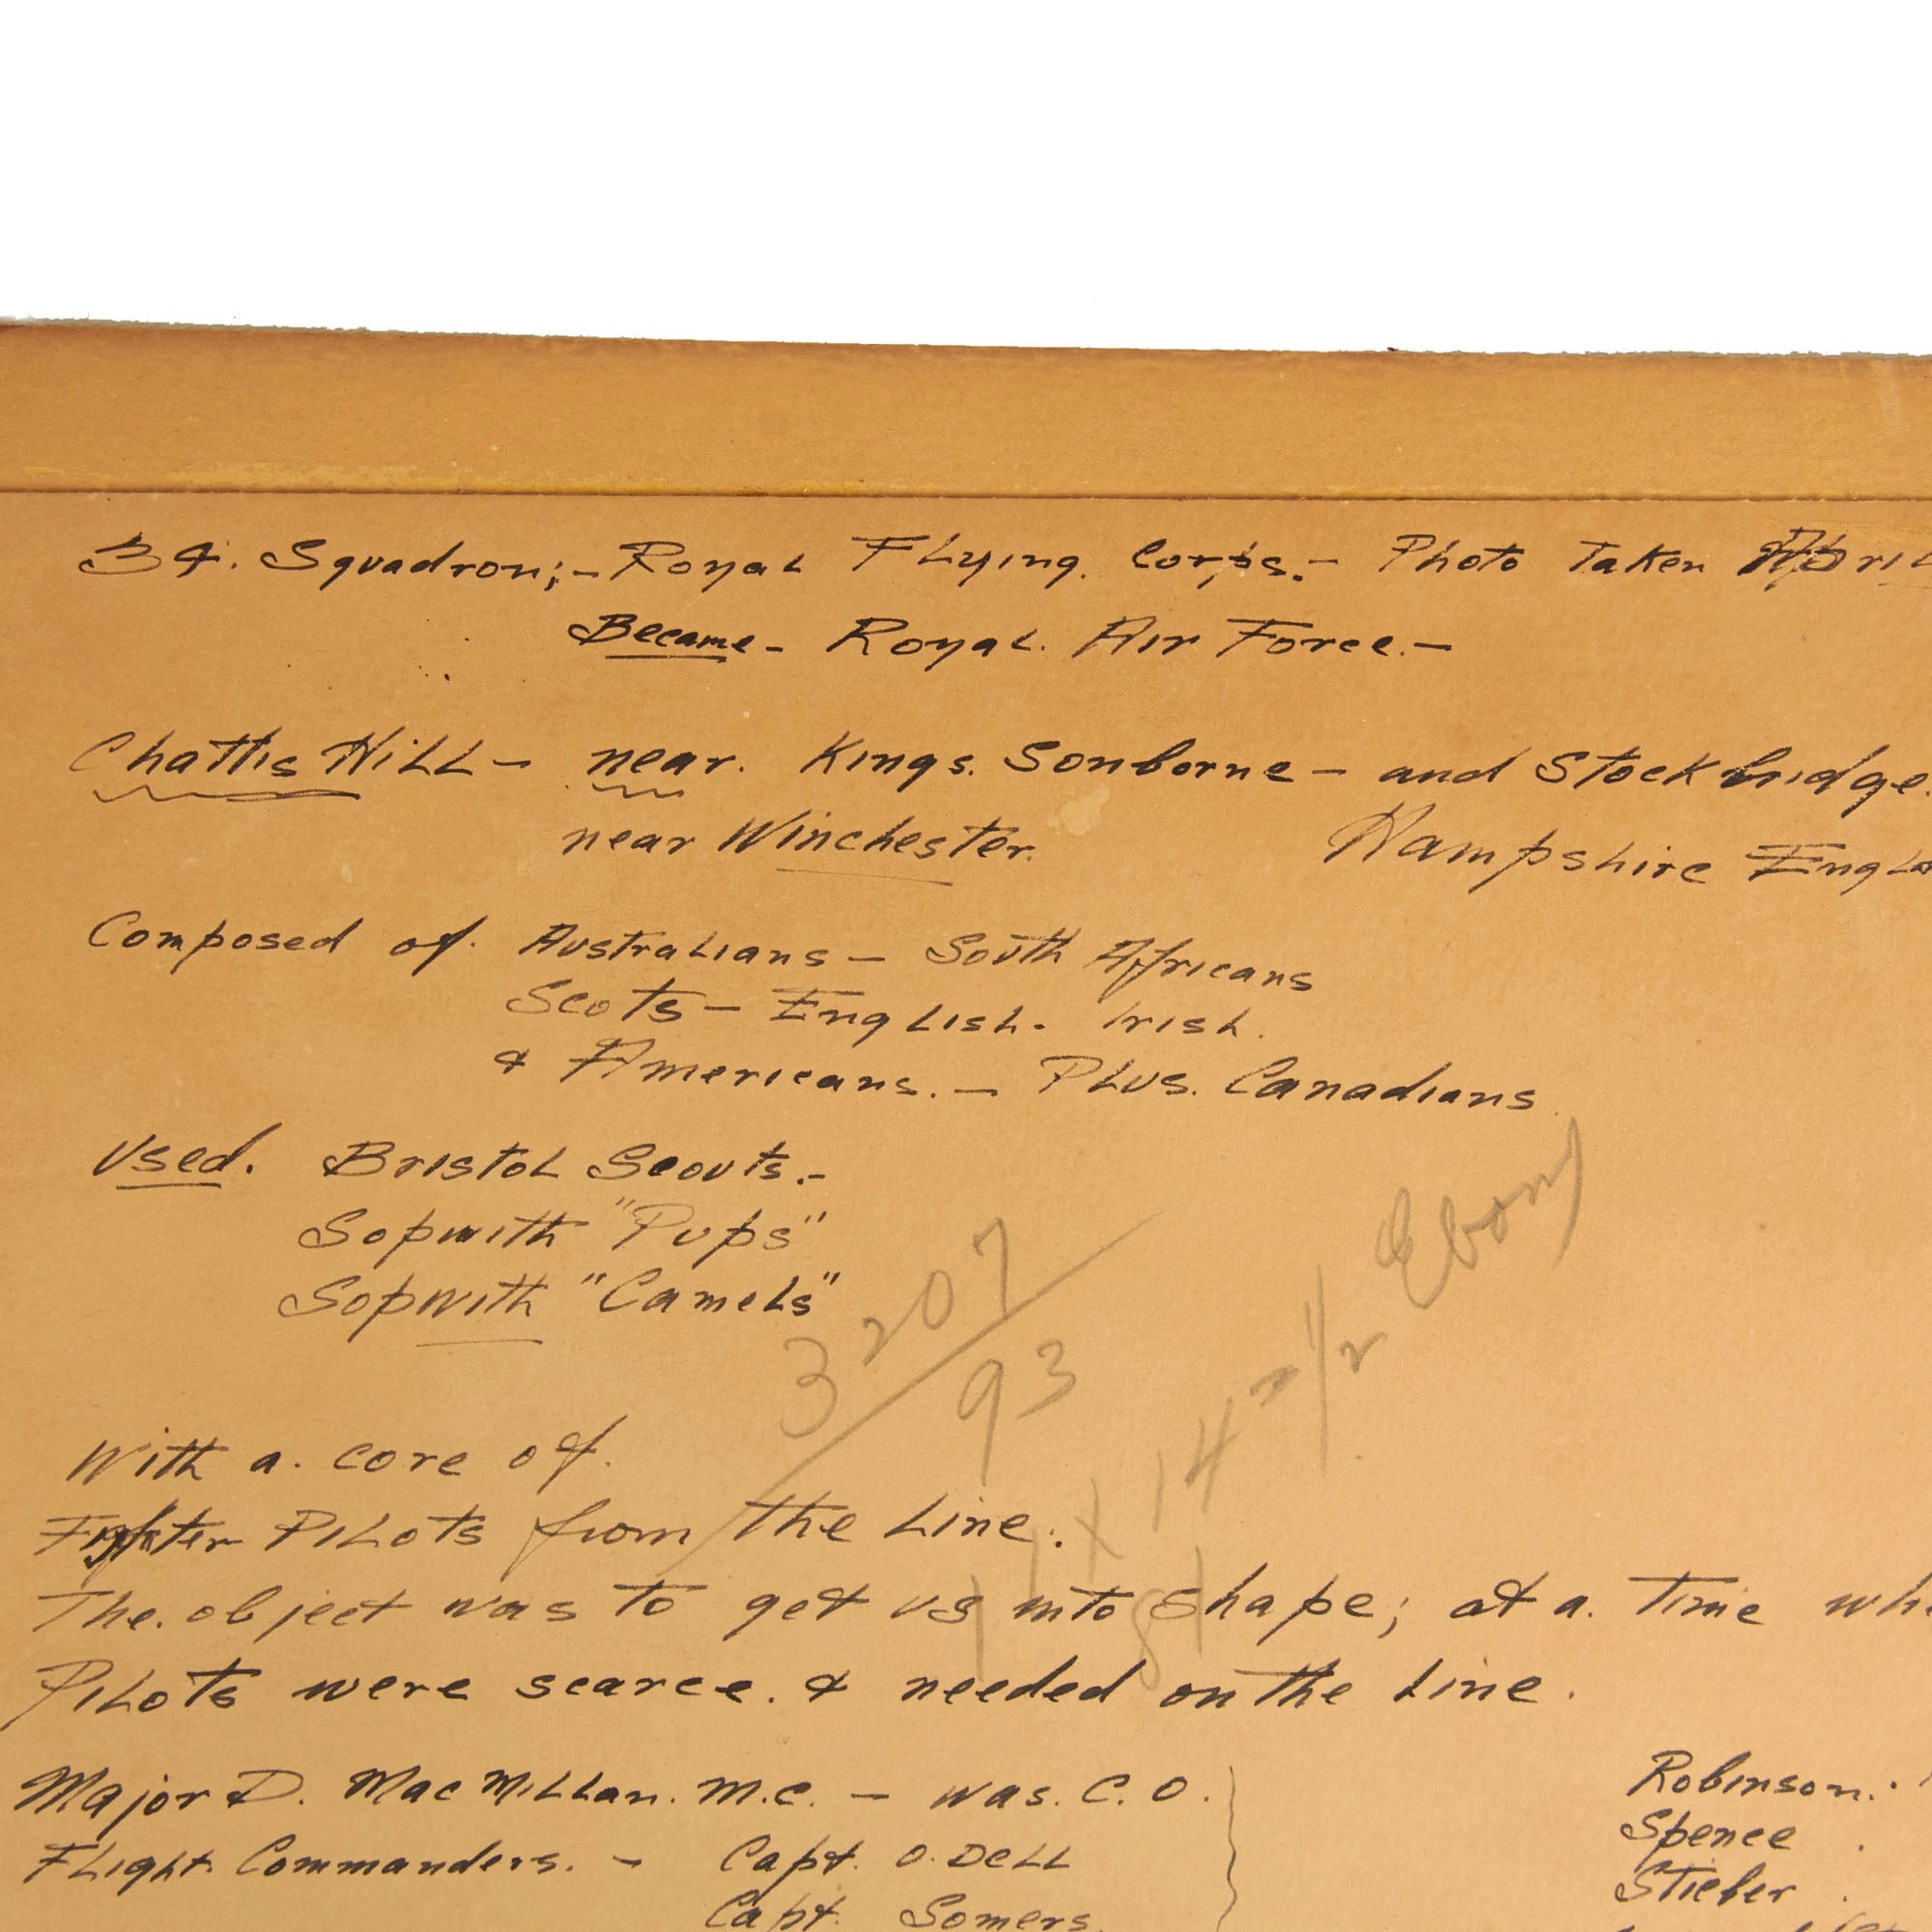 34. Squadron;- Royal Flying. Corps.- Photo Taken April
Became - Royal. Air Force.-
Chattis Hill - near. Kings. Sonborne - and Stockbridge.
near Winchester. Hampshire
Composed of. Australians - South Africans
Scots - English. Irish.
& Americans. - Plus. Canadians
Used. Bristol Scouts.-
Sopwith "Pups"
Sopwith "Camels"
3207/93
11 x 14 - 1/2 Ebony
81
With a. core of.
Fighter Pilots from the Line.
The. object was to get us into shape; at a. Time
Pilots were scarce. & needed on the Line.
Major D. MacMillan. M.C. - was. C.O.
Flight. Commanders. - Capt. O.Dell
Capt. Somers.
Robinson.
Spence
Stieber